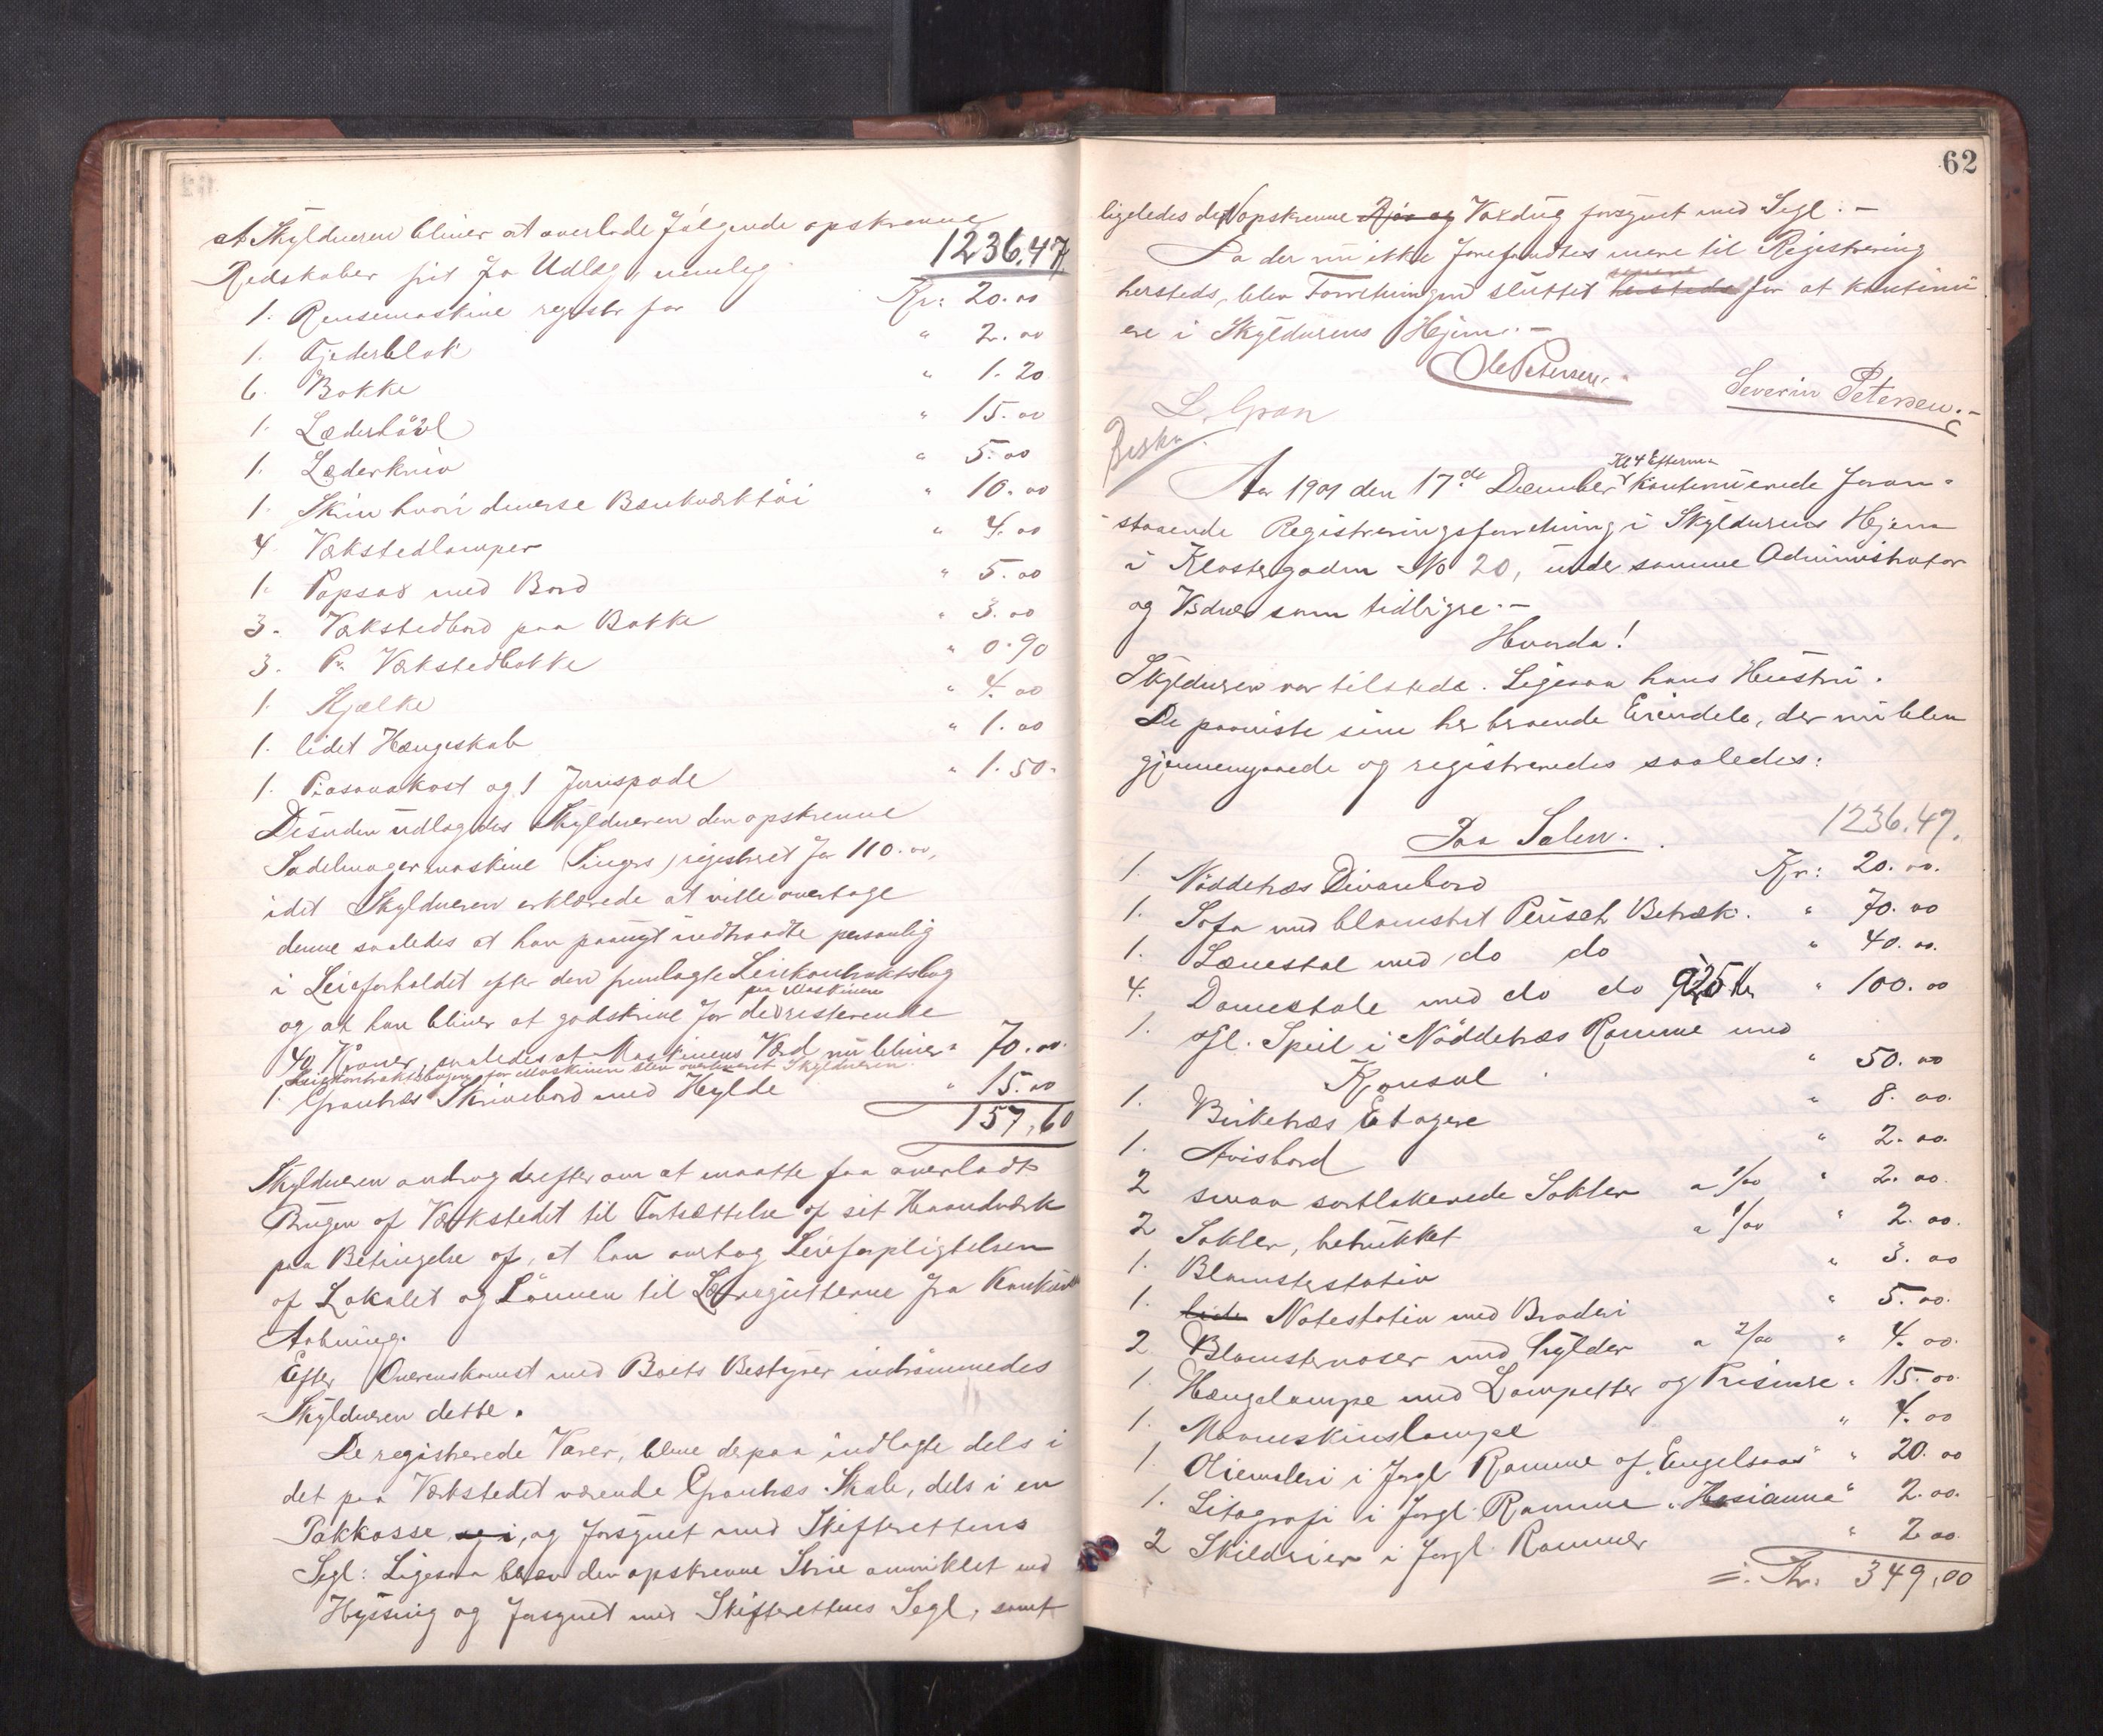 at Skylderen bliver at overlade følgende opskrevne
1236,47
Redskaber frit fra Udlæg, nemlig
1. Rensemaskine registr for Kr: 20.00
1. Fjederblok " 2.00
6. Bokke " 1.20
1. Læderhøvl " 15.00
1. Læderkniv " 5.00
1. Skrin hvori diverse Bænkværktøi " 10.00
4 Værkstedlamper " 4.00
1. Papsax med Bord " 5.00
3. Værkstedbord paa Bokke " 3.00
3. Pr Værkstedbokke " 0.90
1. Kjælke " 4.00
1. lidet Hængeskab " 1.00
1. Piasavakost og 1 Jernspade " 1.50.
Desuden udlagdes Skylderen den opskrevne
Sadelmagermaskine (Singers) registreret for 110.00,
idet Skylderen erklærede at ville overtage
denne saaledes at han paanyt indtraadte personlig
i Leieforholdet efter den fremlagte Leiekontraktsbog
og at han bliver at godskrive for de resterende
paa Maskinen
40 Kroner, saaledes at Maskinens Værd nu bliver " 70.00
Leiekontraktsbogen for Maskinen blev overleveret Skylderen.
1. Grantræs Skrivebord med Hylde " 15.00
157,60
Skylderen androg derefter om at maatte faa overladt
Brugen af Værkstedet til Fortsættelse af sit Haandværk
paa Betingelse af, at han overtog Leieforpligtelsen
af Lokalet og Lønnen til Læregutterne fra Konkurs
Aabning.
Efter Overenskomst med Boets Bestyrer indrømmedes
Skylderen dette.
De registrerede Varer, bleve derpaa indlagte dels i
det paa Værkstedet værende Grantræs Skab, dels i en
Pakkasse og i, og forsynet med Skifterettens
Segl: Ligesaa blev den opskrevne Strie omviklet med
Hyssing og forsynet med Skifterettens Segl, samt
62
ligeledes den opskrevne og Voxdug forsynet med Segl. -
Da der nu ikke forefandtes mere til Registrering
hersteds, blev Forretningen sluttet hersteds for at kontinu
ere i Skylderens Hjem. -
Ole Petersen
Severin Petersen. -
L. Gran
Beskr.
Aar 1901 den 17de December Kl 4 Efterm. kontinuerede foran-
staaende Registreringsforretning i Skylderens Hjem
i Klostergaden No 20, under samme Administrator
og Vidner som tidligere. -
Hvorda!
Skylderen var tilstede. Ligesaa hans Hustru.
De paaviste sine her beroende Eiendele, der nu blev
gjennemgaaede og registreredes saaledes:
1236,47.
Paa Salen.
1. Nøddetræs Divanbord Kr: 20.00.
1. Sofa med blomstret Plüsch Betræk. " 70.00
1. Lænestol med do do " 40.00.
4. Damestole med do do a 25 Kr " 100.00
1. gl. Speil i Nøddetræs Ramme med
Konsol " 50.00
1. Birketræs Etagere " 8.00.
1. Avisbord " 2.00.
2 smaa sortlakerede Sokler a 1/00 " 2.00.
2 Sokler, betrukket a 1/00 " 2.00.
1. Blomsterstativ " 3.00
1. Notestativ med Broderi " 5.00.
2 Blomstervaser med hylder a 2/00 " 4.00.
1. Hængelampe med Lampetter og Prismer " 15.00.
1. Maaneskinslampe " 4.00
1. Oliemaleri i forgl Ramme af "Engelsaas" " 20.00
1. Litografi i forgl. Ramme "Hosianna" 2.00.
2 Skilderier i forgl. Rammer " 2.00.
=: Kr: 349,00